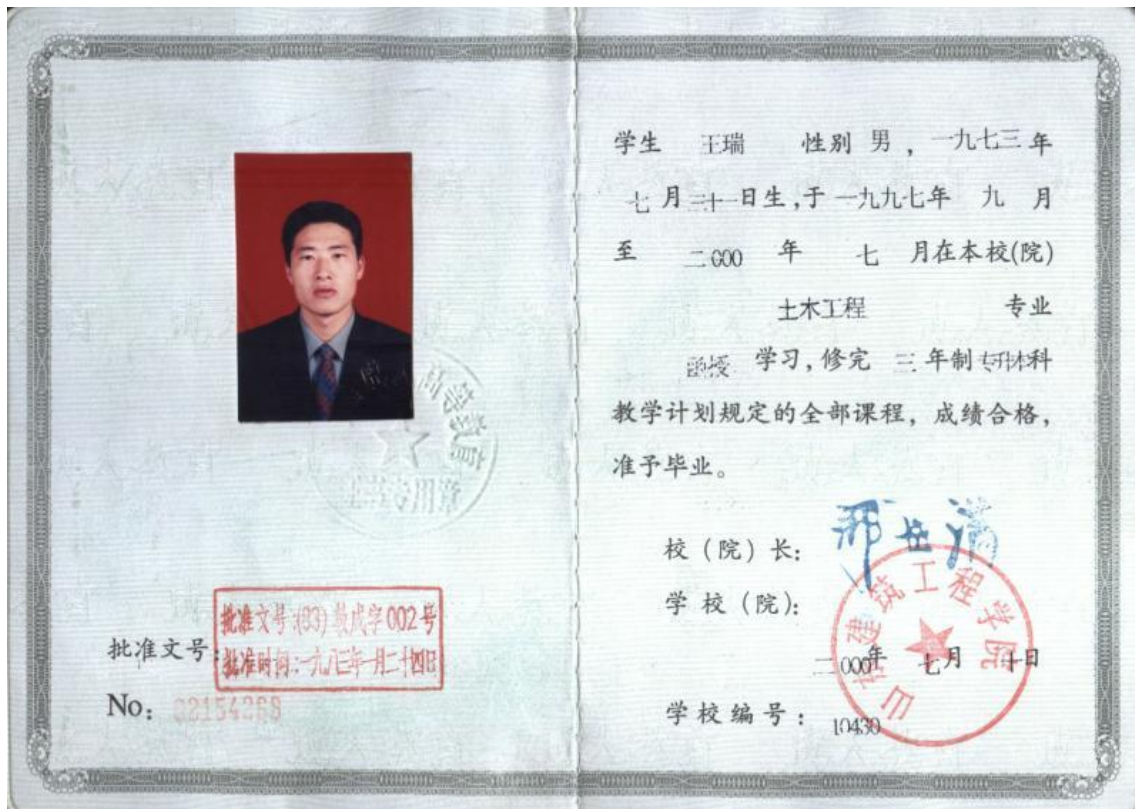 批准文号:
批准文号:(83)教成字002号
批准时间:一九八三年一月二十四日
No: 02154268
学生 王瑞 性别 男 , 一九七三 年
七 月 三十一 日生,于 一九九七年 九 月
至 二000 年 七 月在本校(院)
土木工程 专业
函授 学习,修完 三 年制 专升本科
教学计划规定的全部课程，成绩合格，
准予毕业。
校（院）长: 邢世满
学校（院）:
山东建筑工程学院
二000年 七月 十日
学校编号: 10430